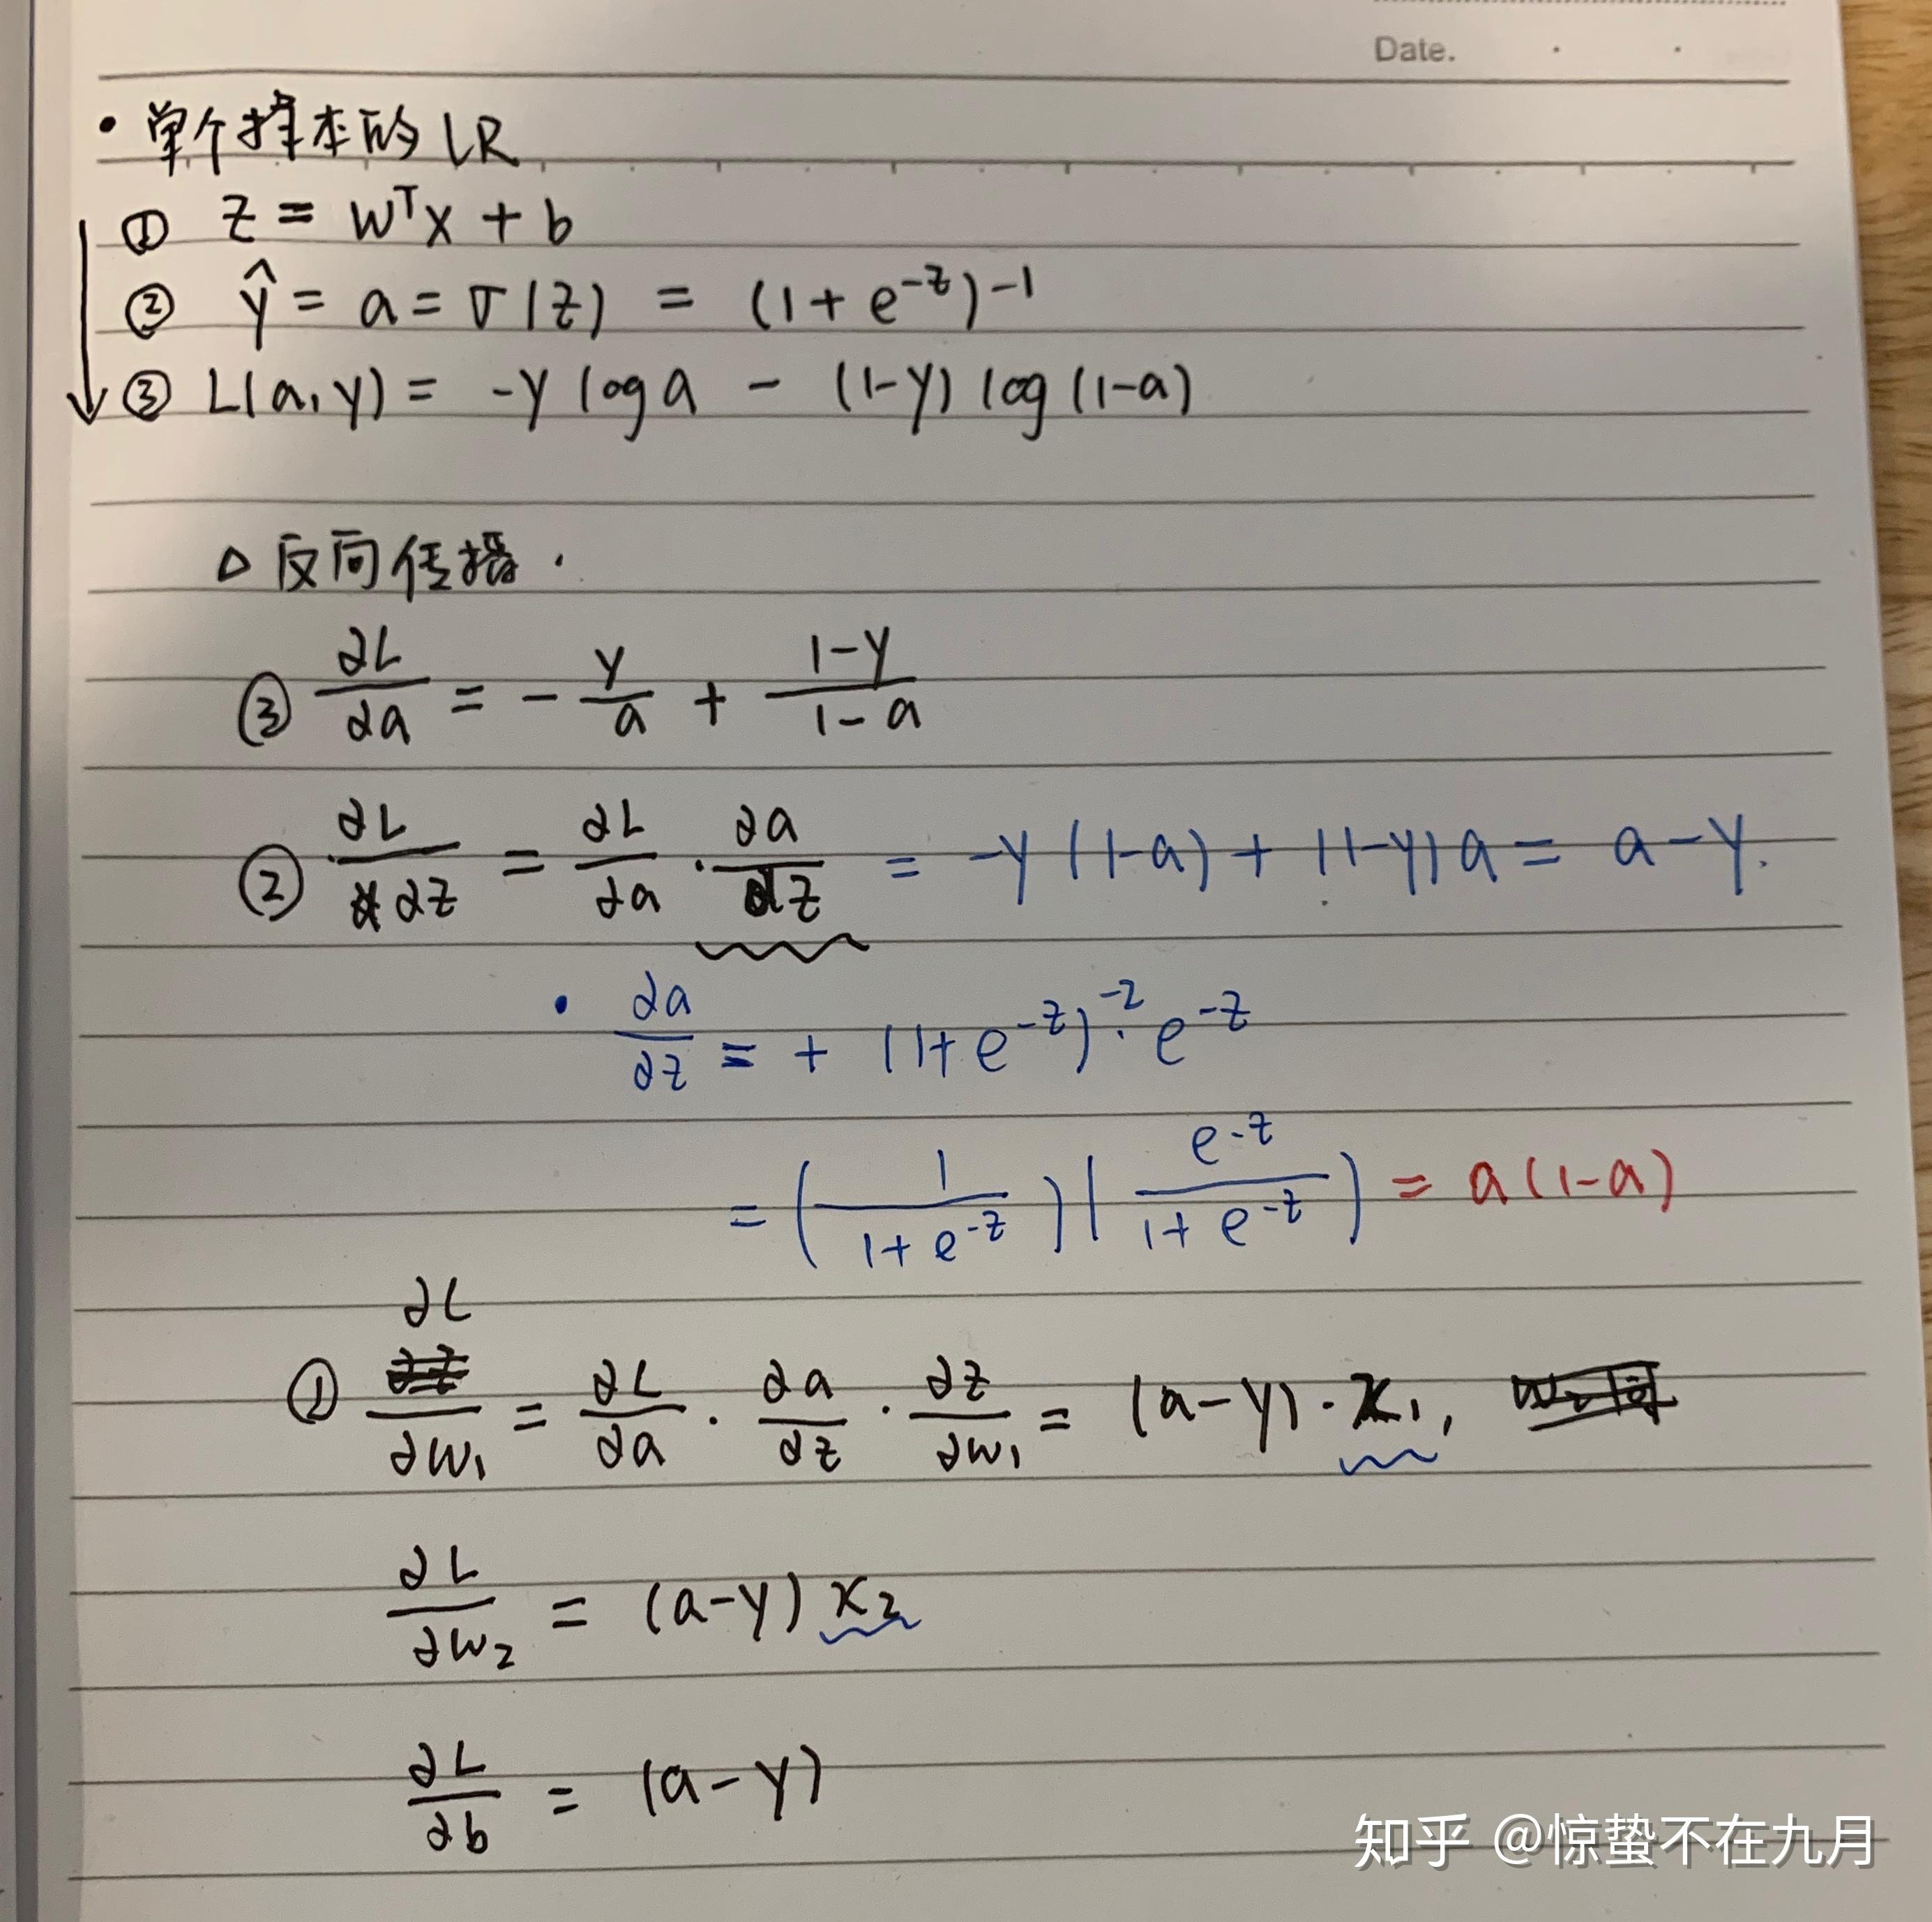 Date.
• 单个样本的 LR
① z = wᵀx + b
② ŷ = a = σ(z) = (1+e^{-z})^{-1}
③ L(a, y) = -y log a - (1-y) log (1-a)
△ 反向传播.
③ ∂L/∂a = - y/a + (1-y)/(1-a)
② ∂L/∂z = ∂L/∂a · ∂a/∂z = -y (1-a) + (1-y) a = a - y.
• ∂a/∂z = + (1+e^{-z})^{-2} · e^{-z}
= (1/(1+e^{-z})) (e^{-z}/(1+e^{-z})) = a(1-a)
① ∂L/∂w₁ = ∂L/∂a · ∂a/∂z · ∂z/∂w₁ = (a-y) · x₁,
∂L/∂w₂ = (a-y) x₂
∂L/∂b = (a-y)
知乎 @惊蛰不在九月